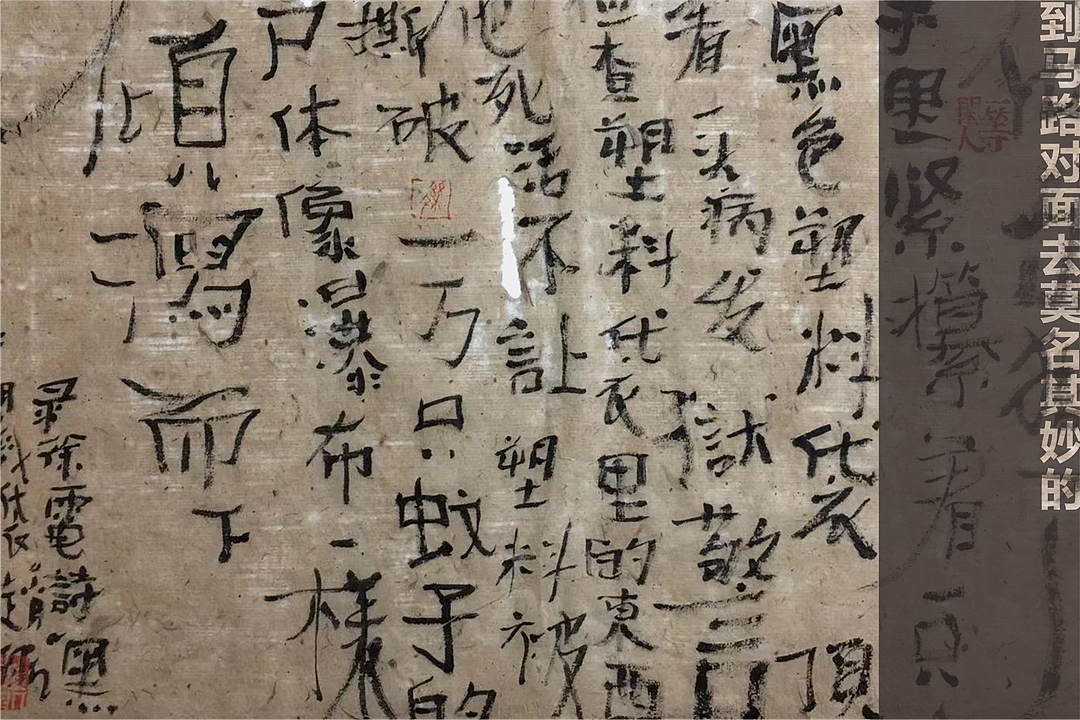 到马路对面去莫名其妙的
手里紧攥着一只
黑色塑料袋 顶
着一头病发 狱警
检查塑料袋里的東西
他死活不让塑料被
撕破一万只蚊子的
尸体像瀑布一样
傾瀉而下
录徐電詩黑